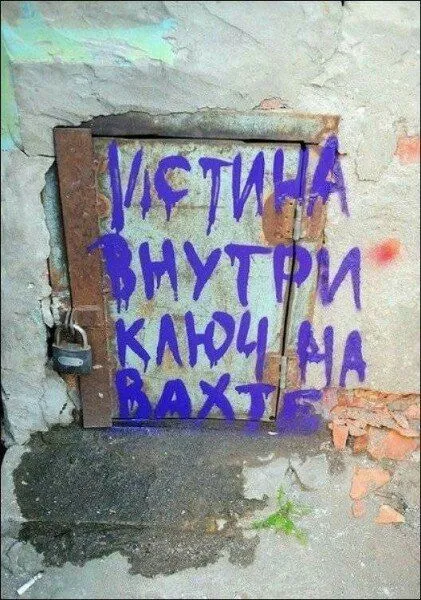 ИСТИНА
ВНУТРИ
КЛЮЧ НА
ВАХТЕ